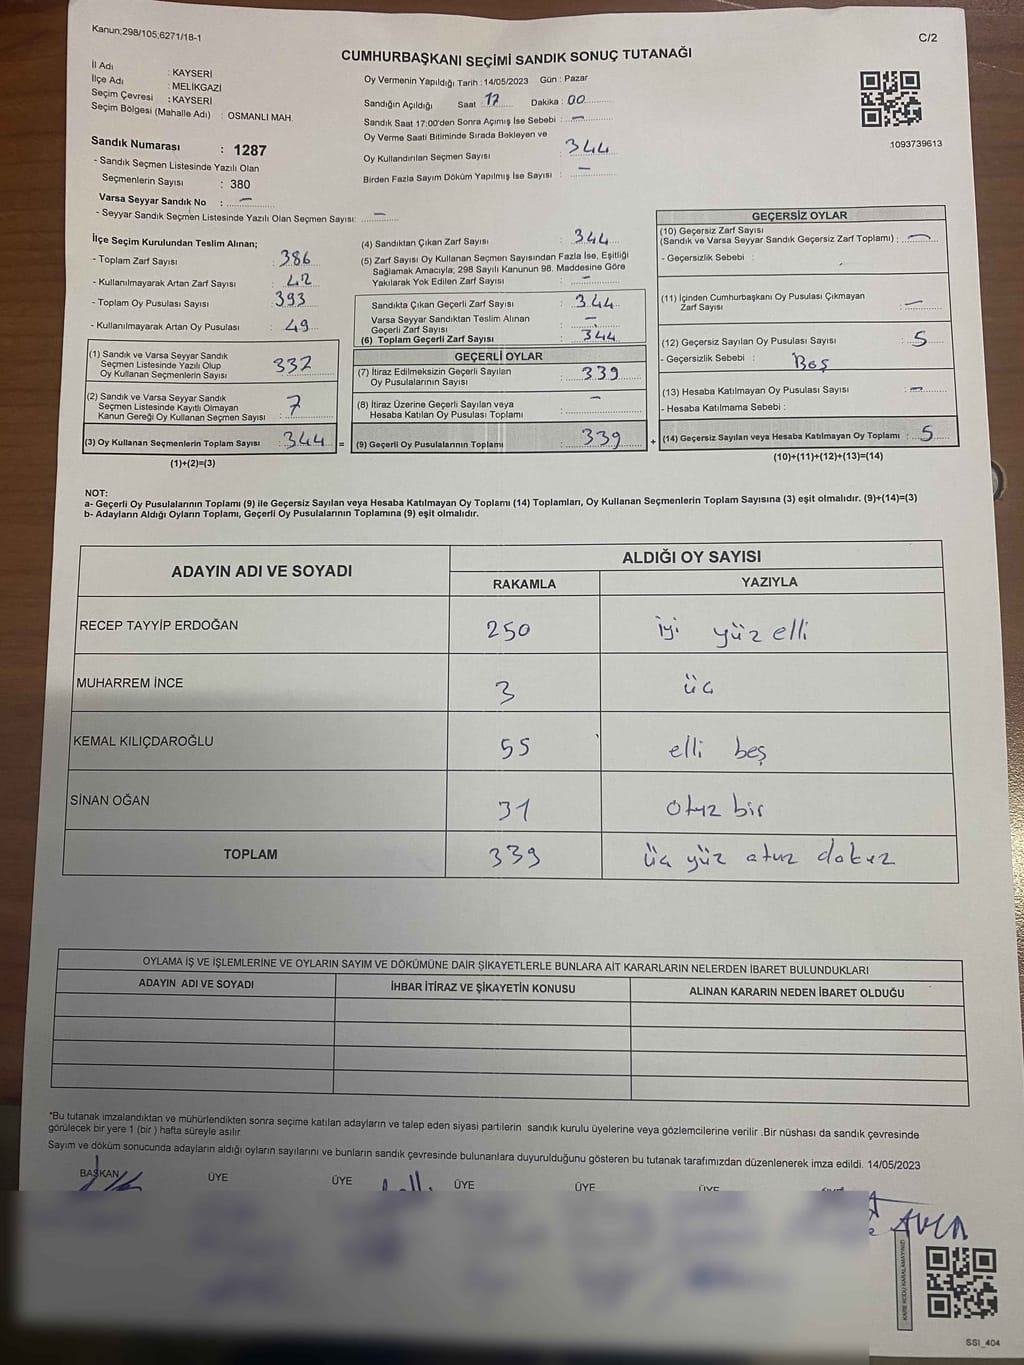 Kanun:298/105;6271/18-1
C/2
CUMHURBAŞKANI SEÇİMİ SANDIK SONUÇ TUTANAĞI
İl Adı : KAYSERİ
İlçe Adı : MELİKGAZİ
Seçim Çevresi : KAYSERİ
Seçim Bölgesi (Mahalle Adı) : OSMANLI MAH.
Sandık Numarası : 1287
- Sandık Seçmen Listesinde Yazılı Olan
Seçmenlerin Sayısı : 380
Varsa Seyyar Sandık No : –
- Seyyar Sandık Seçmen Listesinde Yazılı Olan Seçmen Sayısı: –
Oy Vermenin Yapıldığı Tarih : 14/05/2023 Gün : Pazar
Sandığın Açıldığı Saat : 17 Dakika : 00
Sandık Saat 17:00'den Sonra Açımış İse Sebebi : –
Oy Verme Saati Bitiminde Sırada Bekleyen ve
Oy Kullandırılan Seçmen Sayısı : 344
Birden Fazla Sayım Döküm Yapılmış İse Sayısı : –
1093739613
İlçe Seçim Kurulundan Teslim Alınan;
- Toplam Zarf Sayısı : 386
- Kullanılmayarak Artan Zarf Sayısı : 42
- Toplam Oy Pusulası Sayısı : 393
- Kullanılmayarak Artan Oy Pusulası : 49
(1) Sandık ve Varsa Seyyar Sandık
Seçmen Listesinde Yazılı Olup
Oy Kullanan Seçmenlerin Sayısı : 337
(2) Sandık ve Varsa Seyyar Sandık
Seçmen Listesinde Kayıtlı Olmayan
Kanun Gereği Oy Kullanan Seçmen Sayısı : 7
(3) Oy Kullanan Seçmenlerin Toplam Sayısı : 344 =
(1)+(2)=(3)
(4) Sandıktan Çıkan Zarf Sayısı : 344
(5) Zarf Sayısı Oy Kullanan Seçmen Sayısından Fazla İse, Eşitliği
Sağlamak Amacıyla; 298 Sayılı Kanunun 98. Maddesine Göre
Yakılarak Yok Edilen Zarf Sayısı : –
Sandıkta Çıkan Geçerli Zarf Sayısı : 344
Varsa Seyyar Sandıktan Teslim Alınan
Geçerli Zarf Sayısı : –
(6) Toplam Geçerli Zarf Sayısı : 344
GEÇERLİ OYLAR
(7) İtiraz Edilmeksizin Geçerli Sayılan
Oy Pusulalarının Sayısı : 339
(8) İtiraz Üzerine Geçerli Sayılan veya
Hesaba Katılan Oy Pusulası Toplamı : –
(9) Geçerli Oy Pusulalarının Toplamı : 339 +
GEÇERSİZ OYLAR
(10) Geçersiz Zarf Sayısı
(Sandık ve Varsa Seyyar Sandık Geçersiz Zarf Toplamı) : –
- Geçersizlik Sebebi :
(11) İçinden Cumhurbaşkanı Oy Pusulası Çıkmayan
Zarf Sayısı : –
(12) Geçersiz Sayılan Oy Pusulası Sayısı : 5
- Geçersizlik Sebebi : Boş
(13) Hesaba Katılmayan Oy Pusulası Sayısı : –
- Hesaba Katılmama Sebebi :
(14) Geçersiz Sayılan veya Hesaba Katılmayan Oy Toplamı : 5
(10)+(11)+(12)+(13)=(14)
NOT:
a- Geçerli Oy Pusulalarının Toplamı (9) ile Geçersiz Sayılan veya Hesaba Katılmayan Oy Toplamı (14) Toplamları, Oy Kullanan Seçmenlerin Toplam Sayısına (3) eşit olmalıdır. (9)+(14)=(3)
b- Adayların Aldığı Oyların Toplamı, Geçerli Oy Pusulalarının Toplamına (9) eşit olmalıdır.
ADAYIN ADI VE SOYADI
ALDIĞI OY SAYISI
RAKAMLA YAZIYLA
RECEP TAYYİP ERDOĞAN 250 iyi yüz elli
MUHARREM İNCE 3 üç
KEMAL KILIÇDAROĞLU 55 elli beş
SİNAN OĞAN 31 otuz bir
TOPLAM 339 üç yüz otuz dokuz
OYLAMA İŞ VE İŞLEMLERİNE VE OYLARIN SAYIM VE DÖKÜMÜNE DAİR ŞİKAYETLERLE BUNLARA AİT KARARLARIN NELERDEN İBARET BULUNDUKLARI
ADAYIN ADI VE SOYADI İHBAR İTİRAZ VE ŞİKAYETİN KONUSU ALINAN KARARIN NEDEN İBARET OLDUĞU
*Bu tutanak imzalandıktan ve mühürlendikten sonra seçime katılan adayların ve talep eden siyasi partilerin sandık kurulu üyelerine veya gözlemcilerine verilir .Bir nüshası da sandık çevresinde
görülecek bir yere 1 (bir ) hafta süreyle asılır.
Sayım ve döküm sonucunda adayların aldığı oyların sayılarını ve bunların sandık çevresinde bulunanlara duyurulduğunu gösteren bu tutanak tarafımızdan düzenlenerek imza edildi. 14/05/2023
BAŞKAN ÜYE ÜYE ÜYE ÜYE ÜYE
KARE KODU KARALAMAYINIZ!
SSI_404